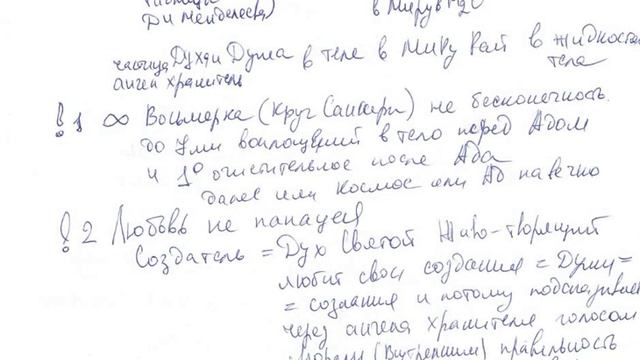 Менделеева)
в Миру в H2O
частица Духа и Душа в теле в Миру Рай в жидкостях
ангел хранитель тела
! 1 ∞ Восьмерка (Круг Сансары) не бесконечность.
до 7ми воплощений в тело перед Адом
и 1о очистительное после Ада
далее или Космос или Ад навечно
! 2 Любовь не панацея
Создатель = Дух Святой Живо-творящий
любит свои создания = Души =
= сознания и потому подсказывает
через ангела хранителя голосом
Морали (Внутренним) правильность